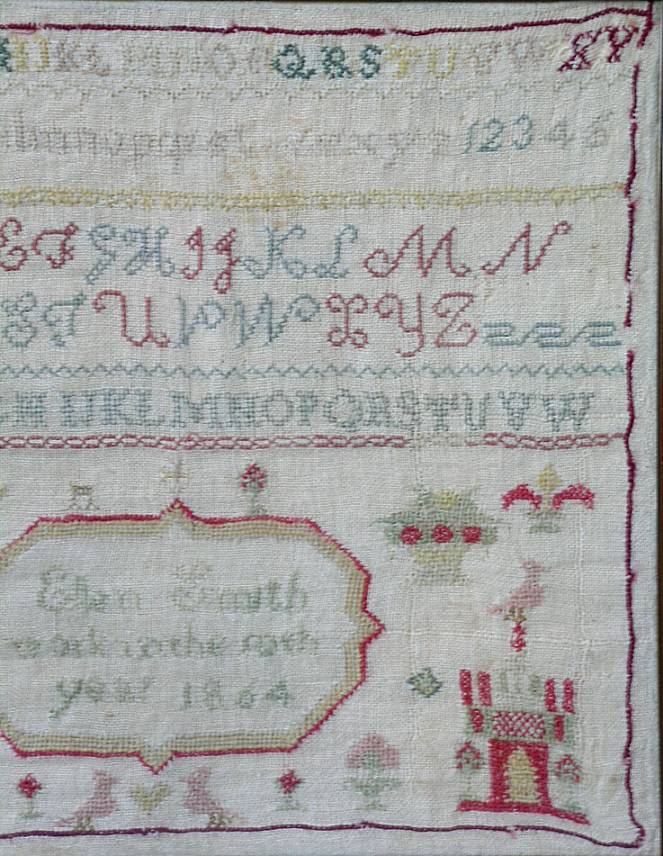 IJKL MNO QRSTUVW XY
lmnopqrst vwxyz 12345
EFGHIJKLMN
STUVWXYZ
HIJKLMNOPQRSTUVW
Ellen Smith
work in the
year 1864